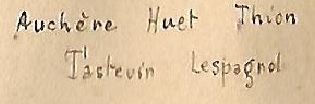 Auchère Huet Thion
Tastevin Lespagnol